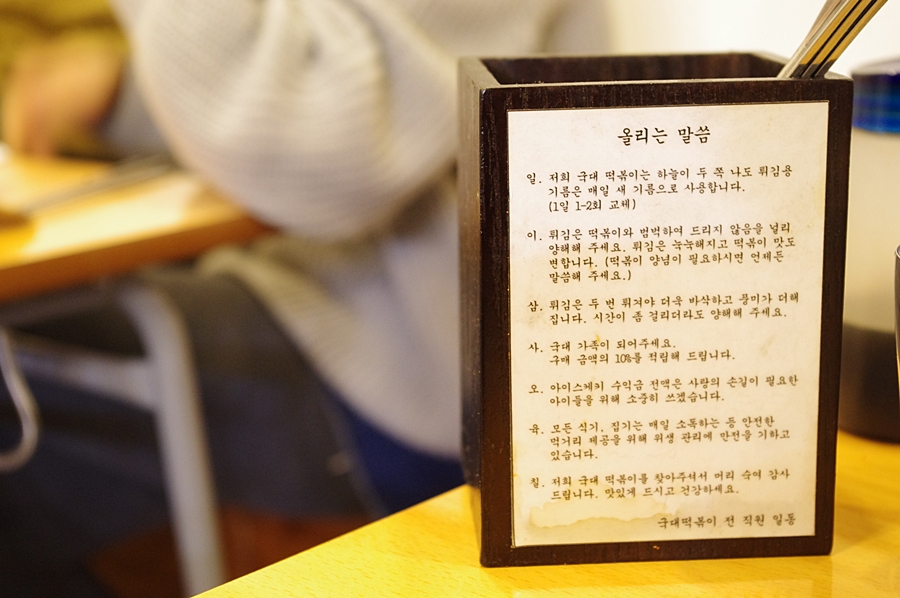 올리는 말씀
일. 저희 국대 떡볶이는 하늘이 두 쪽 나도 튀김용
기름은 매일 새 기름으로 사용합니다.
(1일 1-2회 교체)
이. 튀김은 떡볶이와 범벅하여 드리지 않음을 널리
양해해 주세요. 튀김은 눅눅해지고 떡볶이 맛도
변합니다. (떡볶이 양념이 필요하시면 언제든
말씀해 주세요.)
삼. 튀김은 두 번 튀겨야 더욱 바삭하고 풍미가 더해
집니다. 시간이 좀 걸리더라도 양해해 주세요.
사. 국대 가족이 되어주세요.
구매 금액의 10%를 적립해 드립니다.
오. 아이스께끼 수익금 전액은 사랑의 손길이 필요한
아이들을 위해 소중히 쓰겠습니다.
육. 모든 식기, 집기는 매일 소독하는 등 안전한
먹거리 제공을 위해 위생 관리에 만전을 기하고
있습니다.
칠. 저희 국대 떡볶이를 찾아주셔서 머리 숙여 감사
드립니다. 맛있게 드시고 건강하세요.
국대떡볶이 전 직원 일동